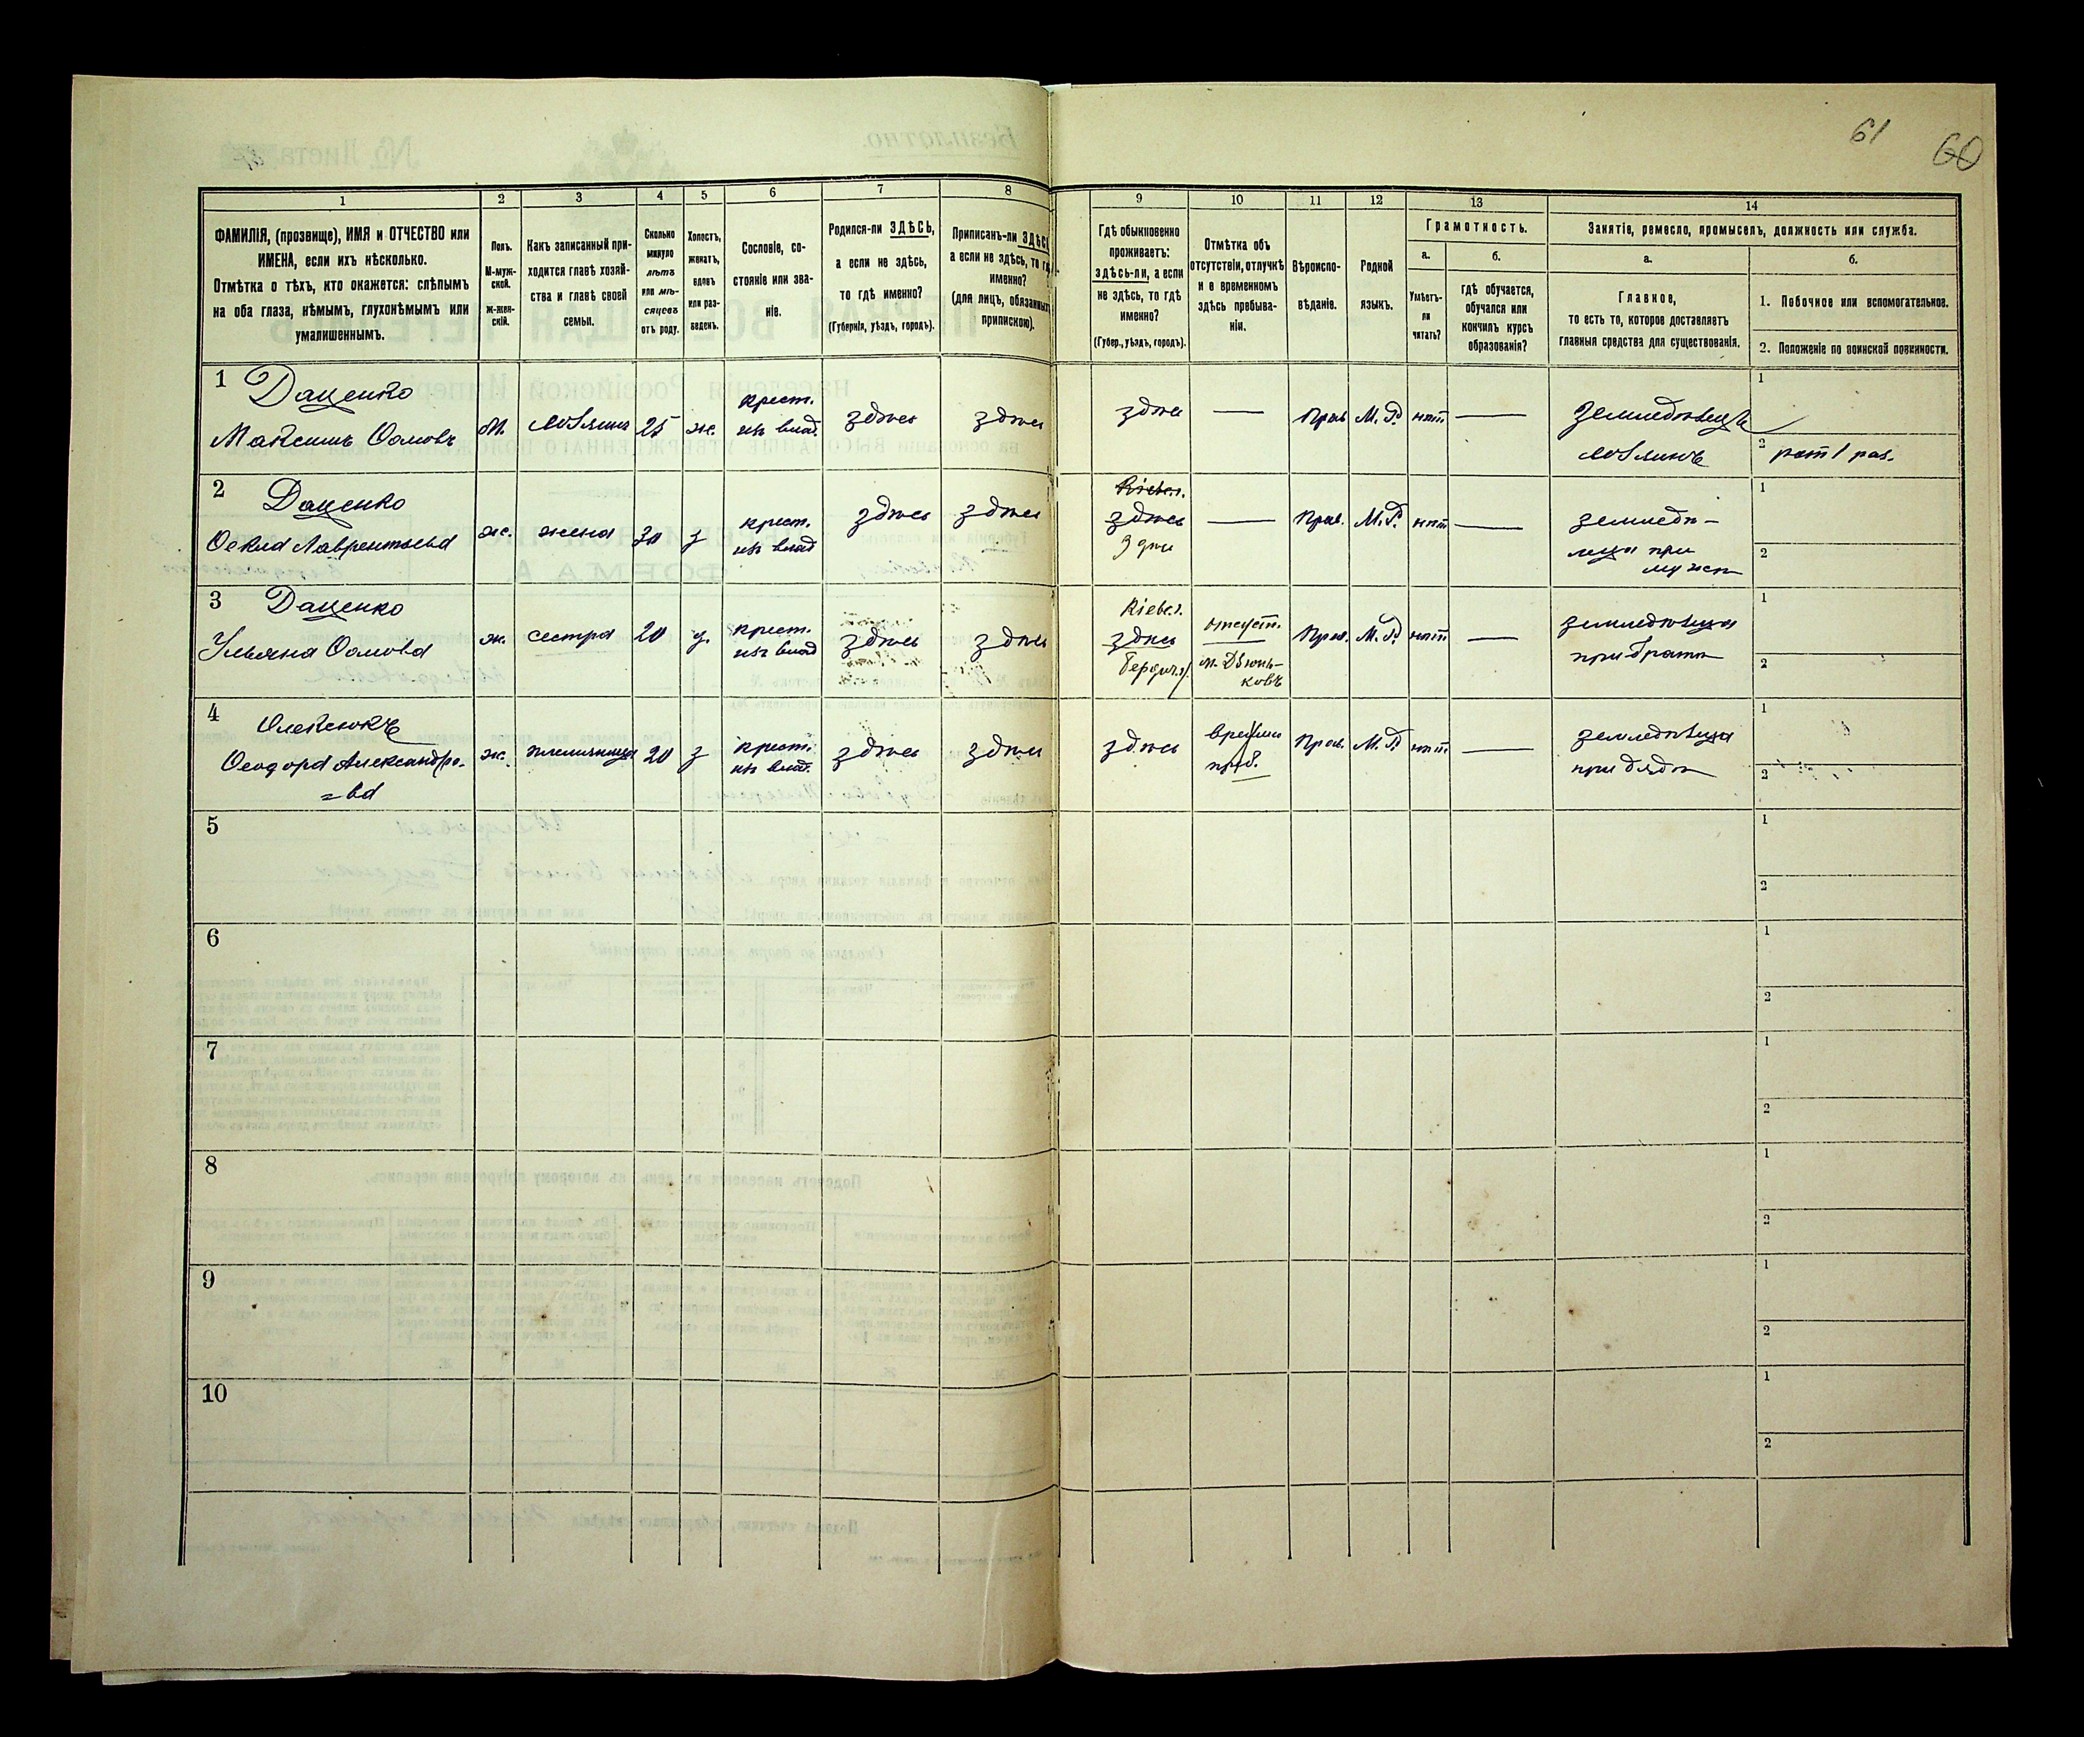 61 60
1 2 3 4 5 6 7 8 9 10 11 12 13 14
ФАМИЛІЯ, (прозвище), ИМЯ и ОТЧЕСТВО или
ИМЕНА, если ихъ нѣсколько.
Отмѣтка о тѣхъ, кто окажется: слѣпымъ
на оба глаза, нѣмымъ, глухонѣмымъ или
умалишеннымъ.
Полъ.
М-муж-
ской.
Ж-жен-
скій.
Какъ записанный при-
ходится главѣ хозяй-
ства и главѣ своей
семьи.
Сколько
минуло
лѣтъ
или мѣ-
сяцевъ
отъ роду.
Холостъ,
женатъ,
вдовъ
или раз-
веденъ.
Сословіе, со-
стояніе или зва-
ніе.
Родился-ли ЗДѢСЬ,
а если не здѣсь,
то гдѣ именно?
(Губернія, уѣздъ, городъ).
Приписанъ-ли ЗДѢСЬ
а если не здѣсь, то гд
именно?
(для лицъ, обязанных
припискою).
Гдѣ обыкновенно
проживаетъ:
здѣсь-ли, а если
не здѣсь, то гдѣ
именно?
(Губер., уѣздъ, городъ).
Отмѣтка объ
отсутствіи, отлучкѣ
и о временномъ
здѣсь пребыва-
ніи.
Вѣроиспо-
вѣданіе.
Родной
языкъ.
Грамотность.
а.
Умѣетъ-
ли
читать?
б.
гдѣ обучается,
обучался или
кончилъ курсъ
образованія?
Занятіе, ремесло, промыселъ, должность или служба.
а.
Главное,
то есть то, которое доставляетъ
главныя средства для существованія.
б.
1. Побочное или вспомогательное.
2. Положеніе по воинской повинности.
1 Даценко
Максимъ Ѳомовъ
М. хозяинъ 25 ж. крест.
изъ влад. здѣсь здѣсь здѣсь — Прав М. Р. нѣтъ — земледѣлецъ
хозяинъ
1
2 рат 1 раз.
2 Даценко
Ѳекла Лаврентьева
ж. жена 20 з крест.
изъ влад здѣсь здѣсь Кіевс.
здѣсь — Прав. М. Р. нѣтъ — земледѣ-
лица при
мужѣ
1
2
3 Даценко
Ульяна Ѳомова
ж. сестра 20 д. крест.
изъ влад здѣсь здѣсь Кіевс.
здѣсь
Бердич. у. отсутст.
м. Дзюнь-
ковъ Прав. М. Р. нѣтъ — земледѣлица
при братѣ
1
2
4 Олексюкъ
Ѳеодора Александро-
=ва
ж. племянница 20 з крест.
изъ влад. здѣсь здѣсь здѣсь времен
преб. Прав. М. Р. нѣтъ — земледѣлица
при дядѣ
1
2
5 1
2
6 1
2
7 1
2
8 1
2
9 1
2
10 1
2